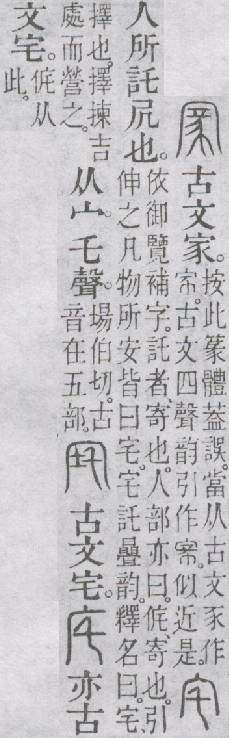 古文家。
按此篆體蓋誤。當从古文豕作
古文四聲韵引作 似近是。
人所託凥也。
依御覽補字。託者寄也。人部亦曰。侂寄也。引
伸之凡物所安皆曰宅。宅託疊韵。釋名曰。宅
擇也。擇揀吉
處而營之。
从宀。乇聲。
場伯切。古
音在五部。
古文宅。
亦古
文宅。
侂从
此。